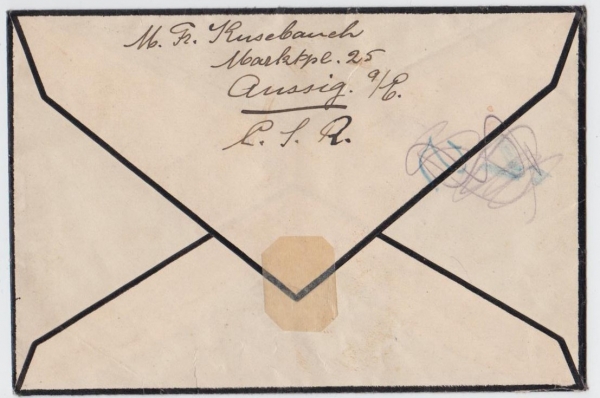 M. Fr. Kusebauch
Marktpl. 25
Aussig. a/E.
C. S. R.